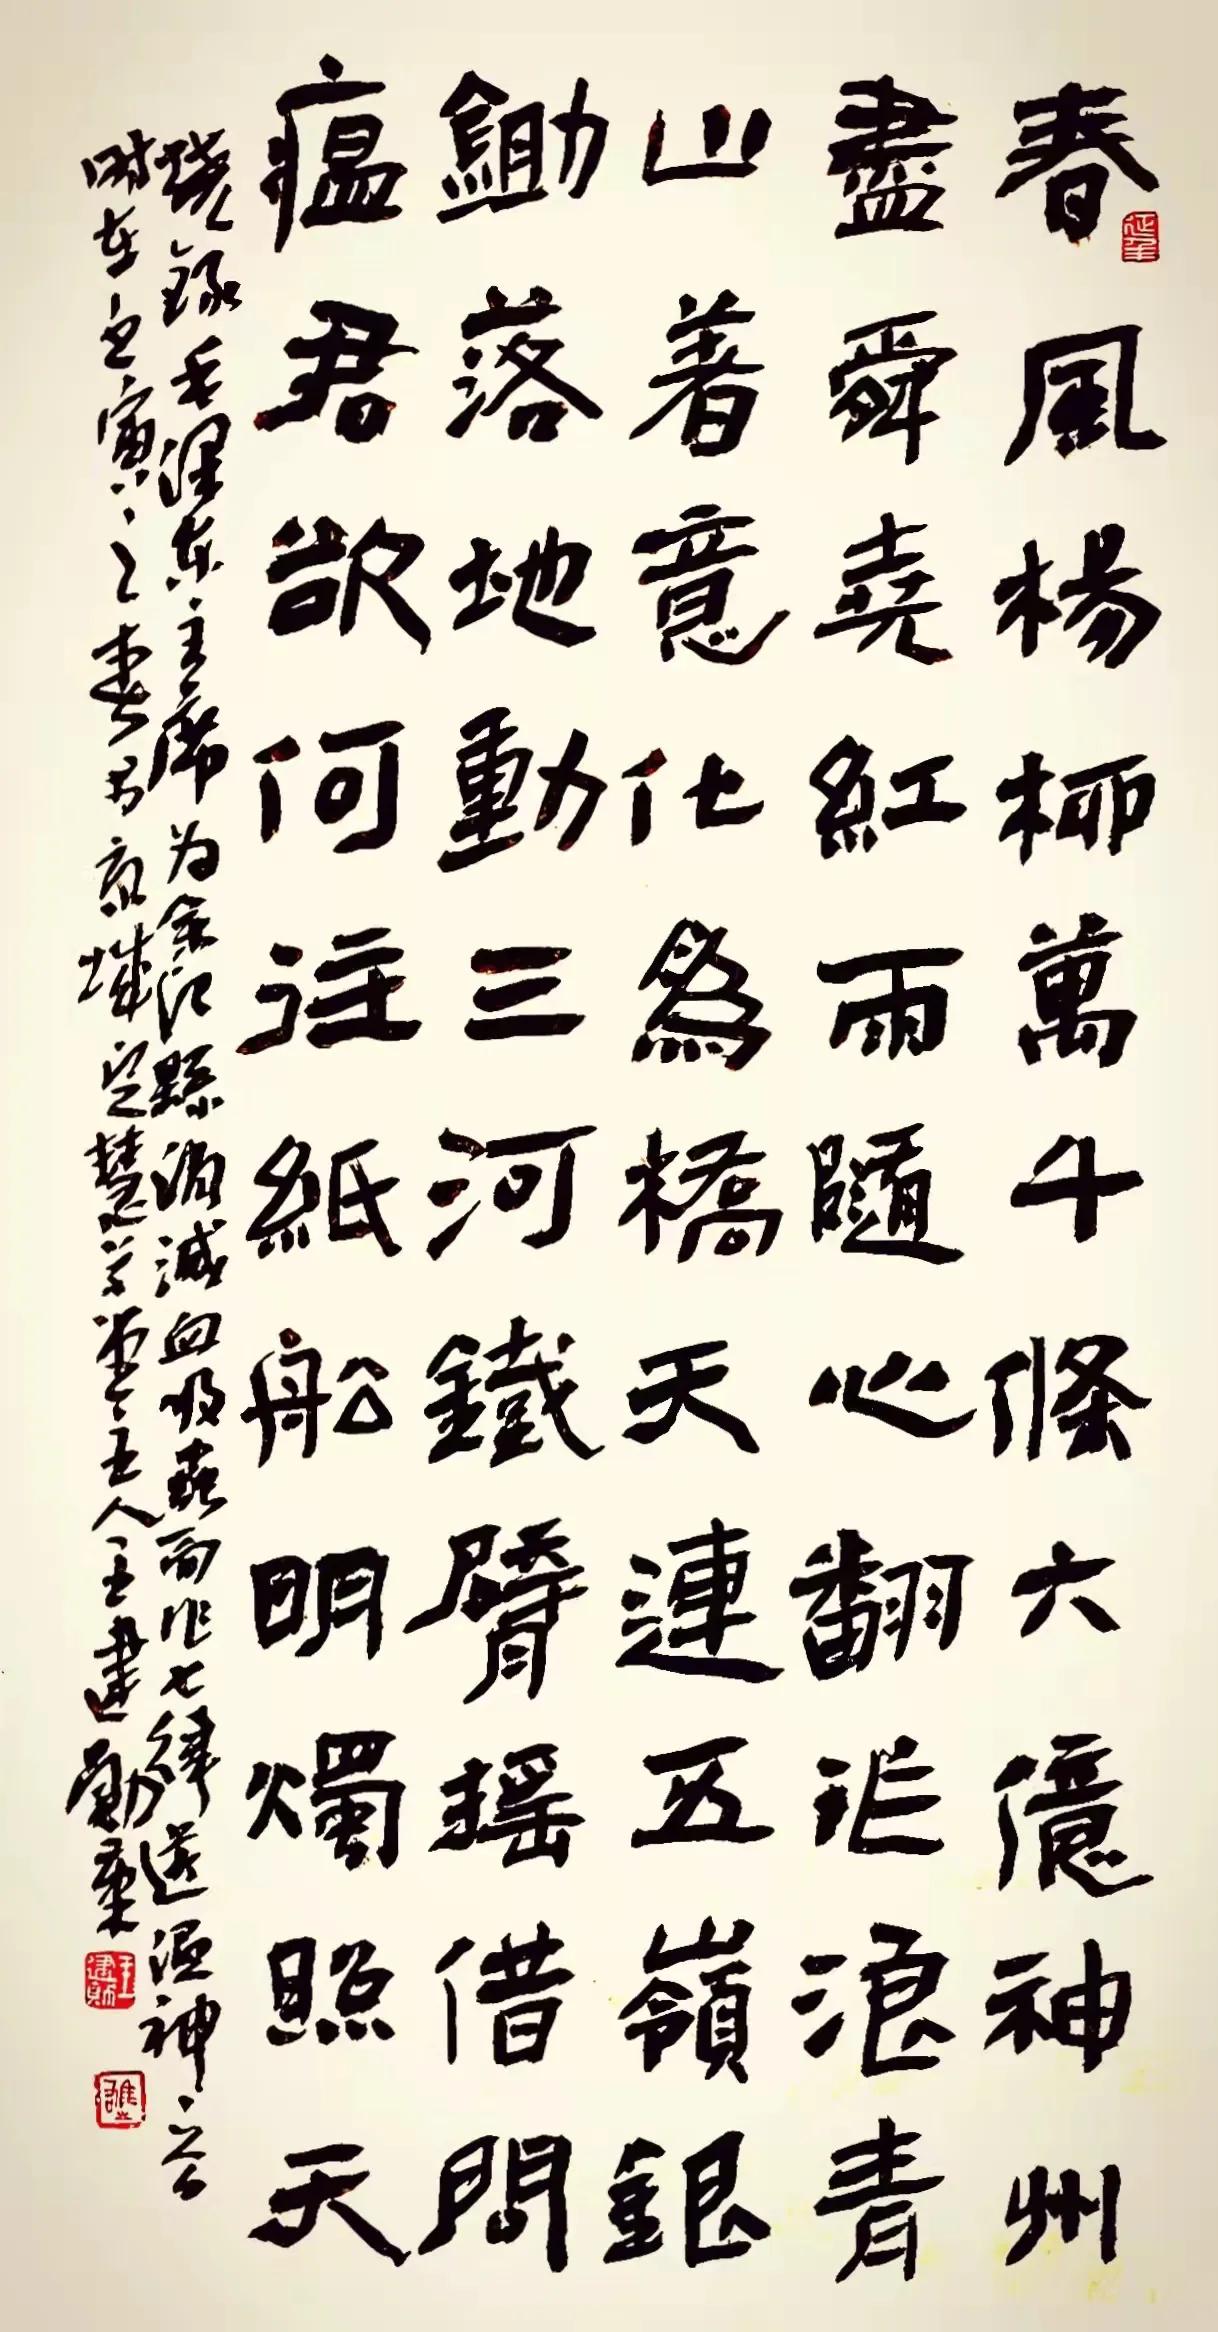 春風楊柳萬千條六億神州
盡舜堯紅雨隨心翻作浪青
山著意化為橋天連五嶺銀
鋤落地動三河鐵臂搖借問
瘟君欲何往紙船明燭照天
燒錄毛澤東主席为余江縣消滅血吸蟲而作七律送瘟神二首
時在壬寅之春于京城定慧寺堂主人王建勛隸